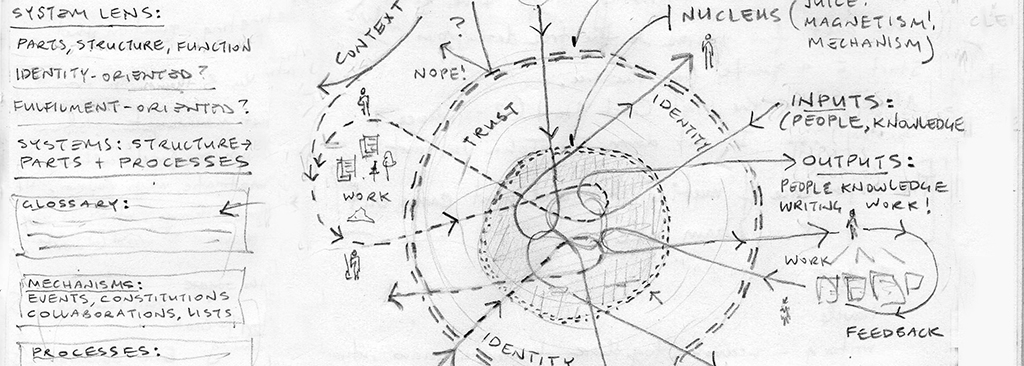 SYSTEM LENS:
PARTS, STRUCTURE, FUNCTION
IDENTITY-ORIENTED?
FULFILMENT-ORIENTED?
SYSTEMS: STRUCTURE→
PARTS + PROCESSES
GLOSSARY:
MECHANISMS:
EVENTS, CONSTITUTIONS
COLLABORATIONS, LISTS
PROCESSES:
CONTEXT
?
NOPE!
WORK
TRUST
IDENTITY
IDENTITY
NUCLEUS (JUICE!
MAGNETISM!
MECHANISM)
INPUTS:
(PEOPLE, KNOWLEDGE
OUTPUTS:
PEOPLE KNOWLEDGE
WRITING WORK!
WORK
FEEDBACK